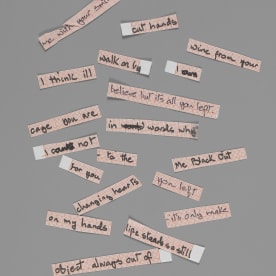 me with your
cut hands
wine from your
walk on by
I think ill
I
believe but it's all you left.
cage you are
in words why
I not
to the
for you
Me Black Out
you left.
changing hearts
on my hands
it's only make
life stands so still
object always out of